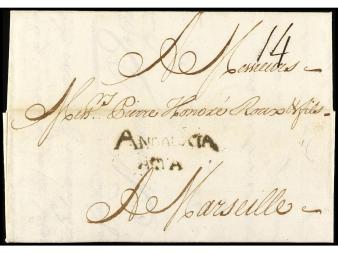 14
A Messieurs
Mess.rs Pierre Honoré Roux & fils
ANDALUCIA
ALTA
A Marseille